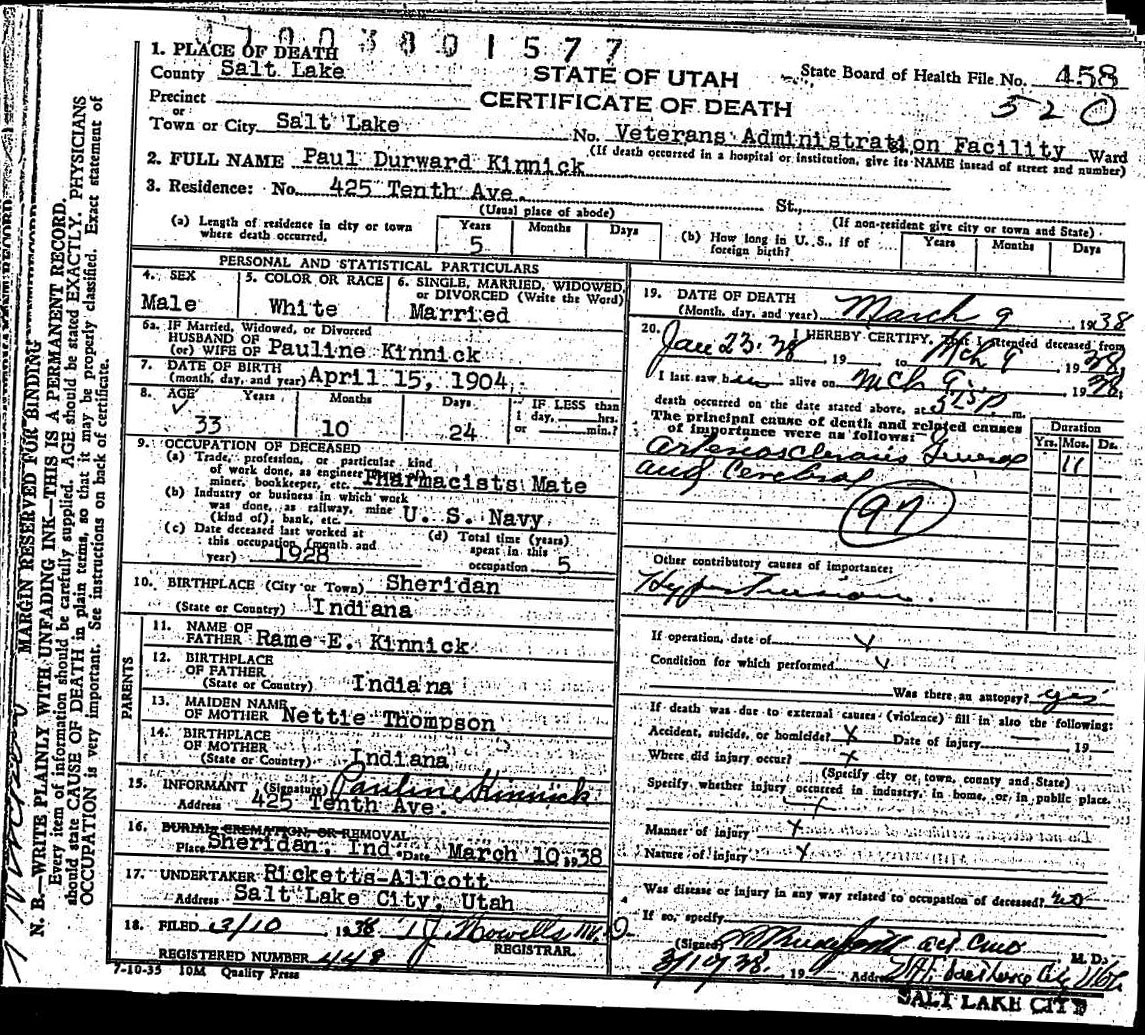 1. PLACE OF DEATH
County Salt Lake
STATE OF UTAH
CERTIFICATE OF DEATH
State Board of Health File No. 458
520
Precinct
or
Town or City Salt Lake No. Veterans Administration Facility Ward
(If death occurred in a hospital or institution, give its NAME instead of street and number)
2. FULL NAME Paul Durward Kinnick
3. Residence: No. 425 Tenth Ave. St.,
(Usual place of abode) (If non-resident give city or town and State)
(a) Length of residence in city or town where death occurred, Years 5 Months Days
(b) How long in U. S., if of foreign birth? Years Months Days
PERSONAL AND STATISTICAL PARTICULARS
4. SEX Male
5. COLOR OR RACE White
6. SINGLE, MARRIED, WIDOWED, or DIVORCED (Write the Word) Married
6a. IF Married, Widowed, or Divorced
HUSBAND OF
(or) WIFE OF Pauline Kinnick
7. DATE OF BIRTH
(month, day, and year) April 15, 1904
8. AGE Years Months Days IF LESS than
1 day, hrs.
or min.?
33 10 24
9. OCCUPATION OF DECEASED
(a) Trade, profession, or particular kind
of work done, as engineer
miner, bookkeeper, etc. Pharmacists Mate
(b) Industry or business in which work
was done, as railway, mine
(kind of), bank, etc. U. S. Navy
(c) Date deceased last worked at
this occupation (month and
year) 1928
(d) Total time (years)
spent in this
occupation 5
10. BIRTHPLACE (City or Town) Sheridan
(State or Country) Indiana
PARENTS
11. NAME OF
FATHER Rame E. Kinnick
12. BIRTHPLACE
OF FATHER
(State or Country) Indiana
13. MAIDEN NAME
OF MOTHER Nettie Thompson
14. BIRTHPLACE
OF MOTHER
(State or Country) Indiana
15. INFORMANT (Signature) Pauline Kinnick
Address 425 Tenth Ave.
16. BURIAL, CREMATION, OR REMOVAL
Place Sheridan, Ind. Date March 10, 1938
17. UNDERTAKER Ricketts-Allcott
Address Salt Lake City, Utah
18. FILED 3/10 1938 Howells M. D.
REGISTRAR.
REGISTERED NUMBER 448
7-10-35 10M Quality Press
19. DATE OF DEATH
(Month, day, and year) March 9, 1938
20. I HEREBY CERTIFY, That I attended deceased from
Jan 23-38, 19 to Mch 9 1938,
I last saw him alive on Mch 9, 1938,
death occurred on the date stated above, at 325 P m.
The principal cause of death and related causes
of importance were as follows:
Duration
Yrs. Mos. Ds.
Arteriosclerosis General 11
and Cerebral
97
Other contributory causes of importance:
Hypertension.
If operation, date of
Condition for which performed
Was there an autopsy? yes
If death was due to external causes (violence) fill in also the following:
Accident, suicide, or homicide? x Date of injury — 19
Where did injury occur? x
(Specify city or town, county and State)
Specify whether injury occurred in industry, in home, or in public place.
Manner of injury x
Nature of injury x
Was disease or injury in any way related to occupation of deceased? no
If so, specify
(Signed) M. D.
3/10/38. 19 Address
SALT LAKE CITY
MARGIN RESERVED FOR BINDING
N. B.—WRITE PLAINLY WITH UNFADING INK—THIS IS A PERMANENT RECORD.
Every item of information should be carefully supplied. AGE should be stated EXACTLY. PHYSICIANS
should state CAUSE OF DEATH in plain terms, so that it may be properly classified. Exact statement of
OCCUPATION is very important. See instructions on back of certificate.